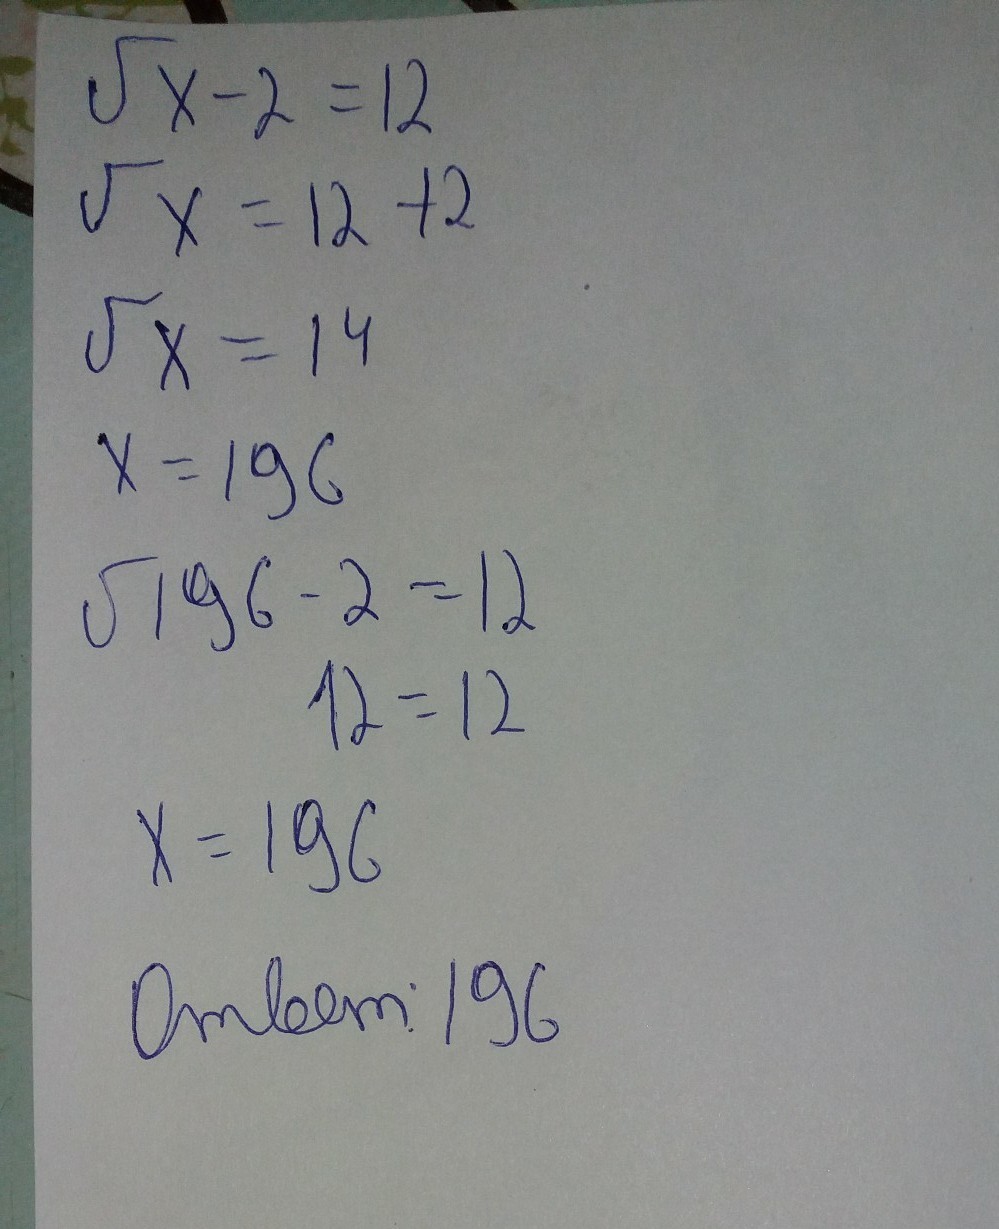 √x-2 = 12
√x = 12 +2
√x = 14
x = 196
√196 - 2 = 12
12 = 12
x = 196
Ответ: 196